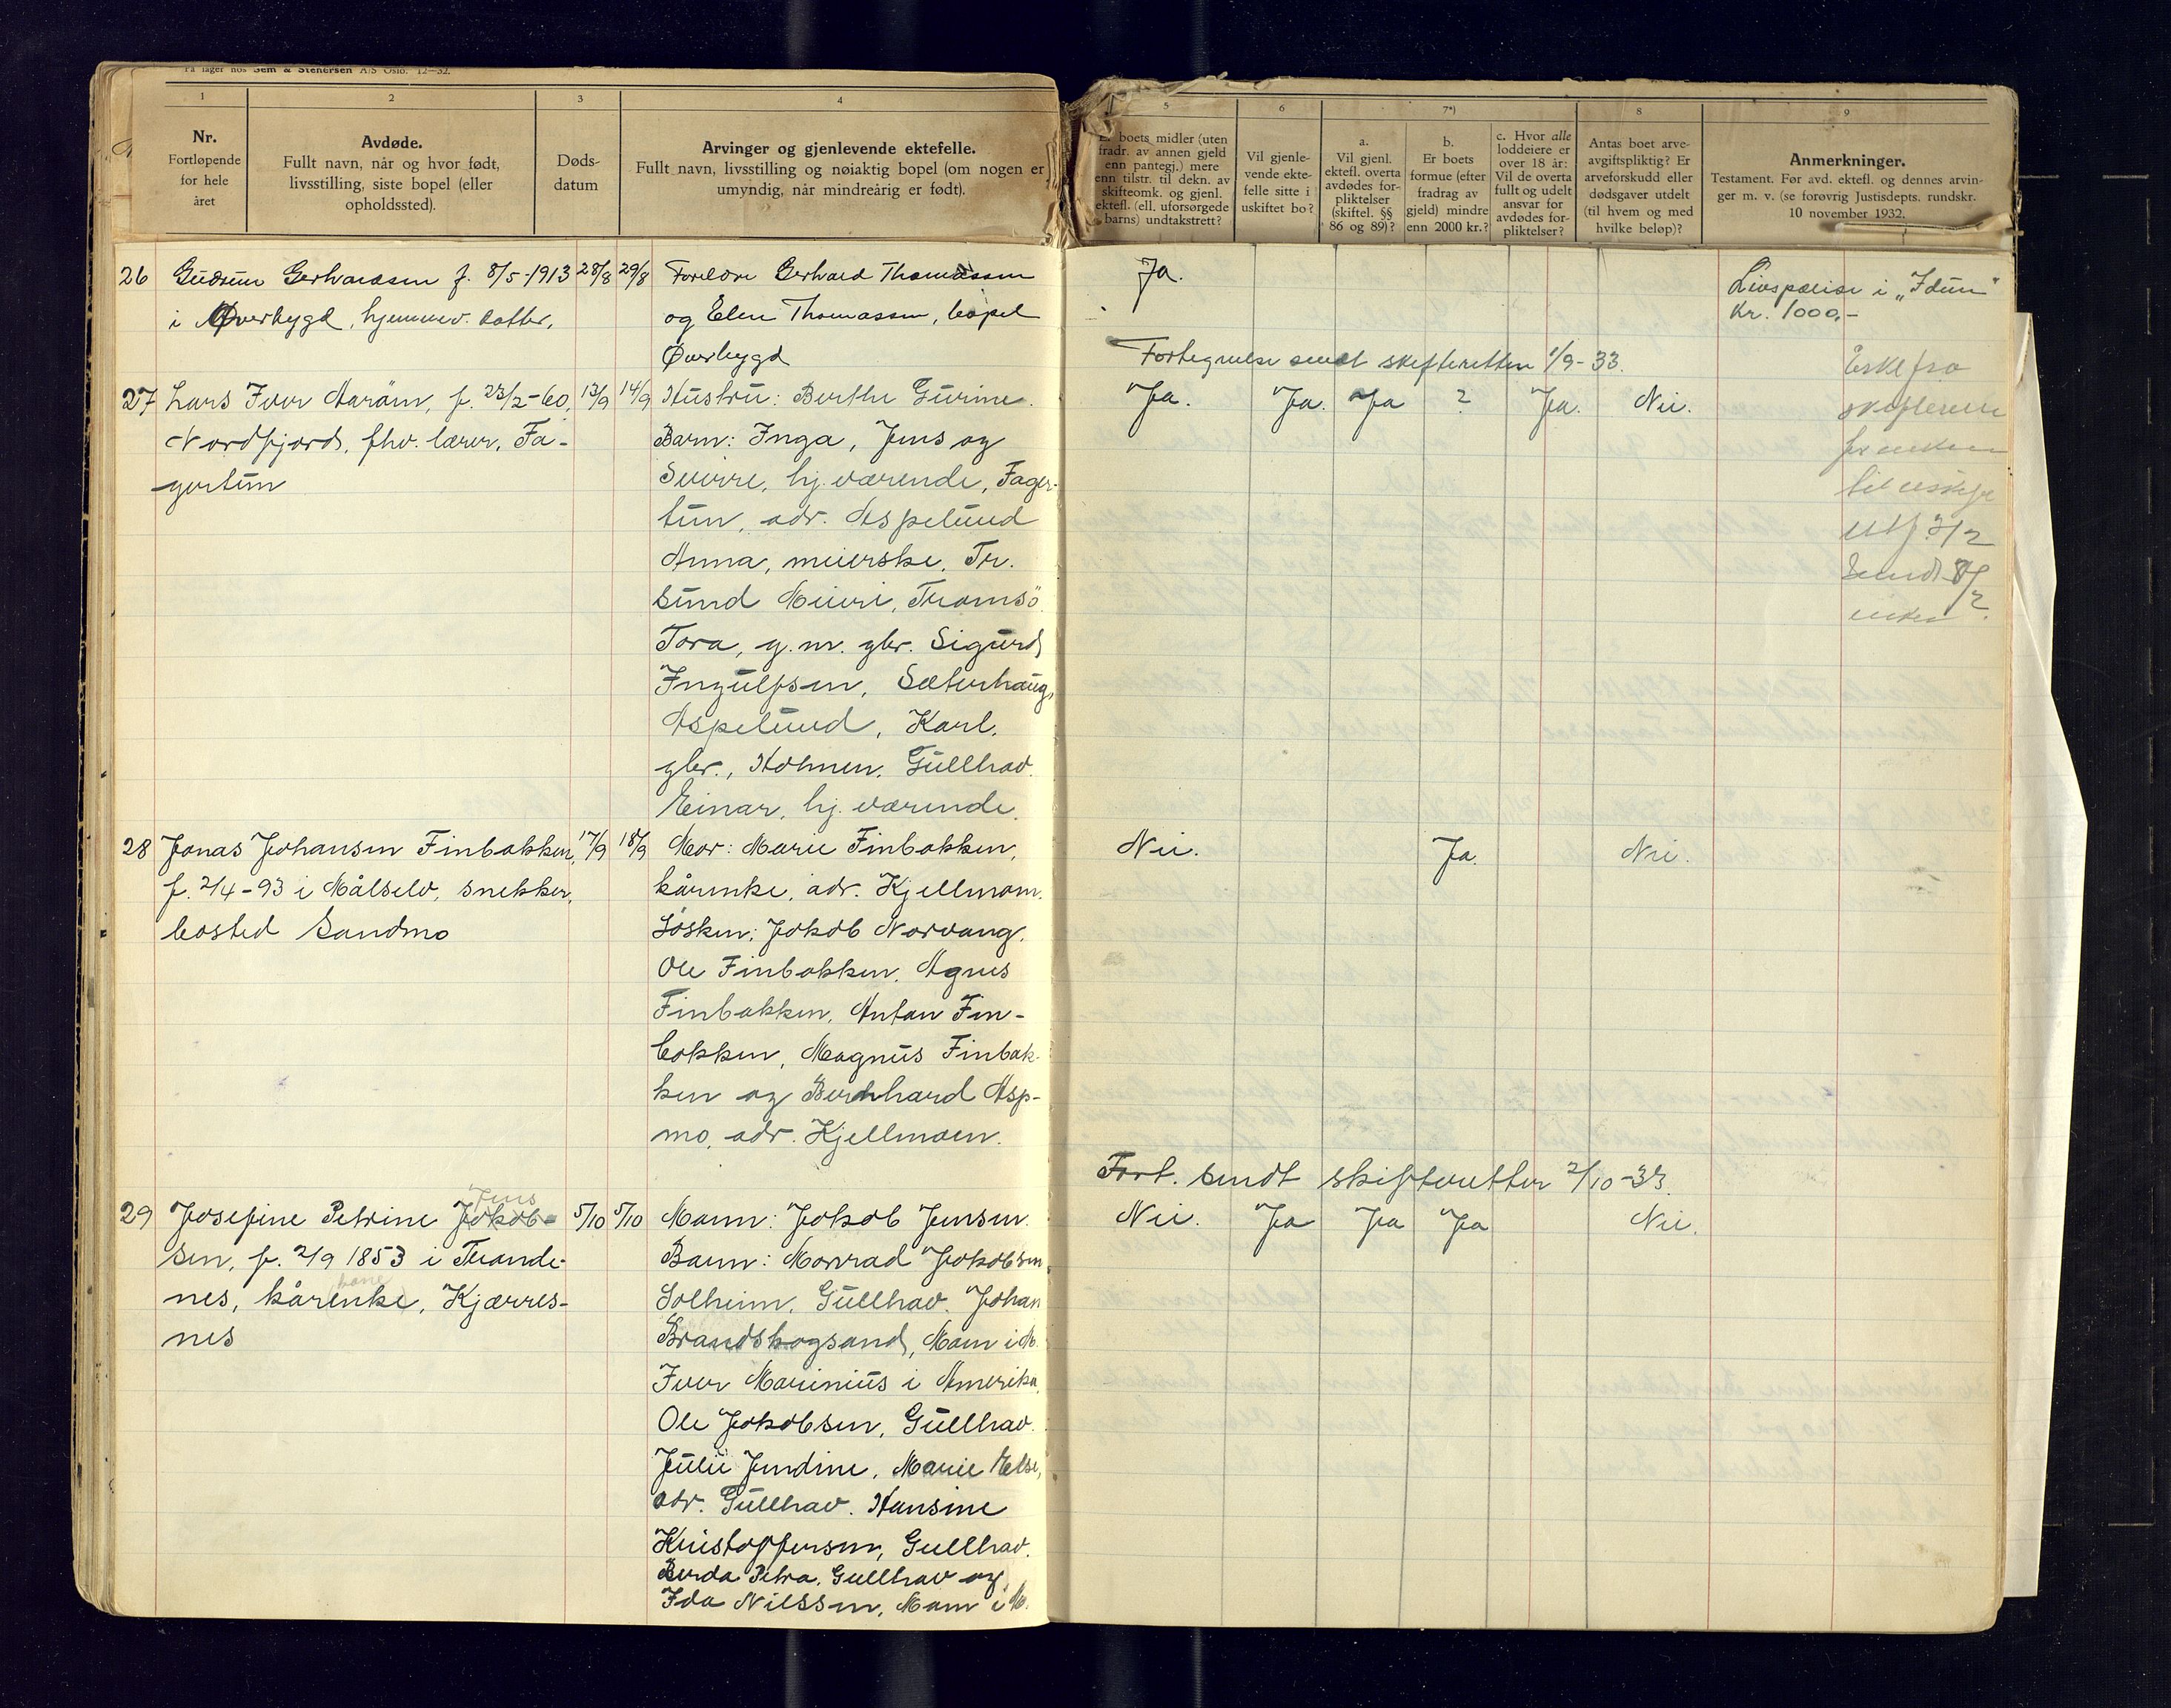 På lager hos Sem & Stenersen A/S Oslo. 12—32.
1
Nr.
Fortløpende
for hele
året
2
Avdøde.
Fullt navn, når og hvor født,
livsstilling, siste bopel (eller
opholdssted).
3
Døds-
datum
4
Arvinger og gjenlevende ektefelle.
Fullt navn, livsstilling og nøiaktig bopel (om nogen er
umyndig, når mindreårig er født).
5
boets midler (uten
fradr. av annen gjeld
enn pantegj.) mere
enn tilstr. til dekn. av
skifteomk. og gjenl.
ektefl. (ell. uforsørgede
barns) undtakstrett?
6
Vil gjenle-
vende ekte-
felle sitte i
uskiftet bo?
7*)
a.
Vil gjenl.
ektefl. overta
avdødes for-
pliktelser
(skiftel. §§
86 og 89)?
b.
Er boets
formue (efter
fradrag av
gjeld) mindre
enn 2000 kr.?
c. Hvor alle
loddeiere er
over 18 år:
Vil de overta
fullt og udelt
ansvar for
avdødes for-
pliktelser?
8
Antas boet arve-
avgiftspliktig? Er
arveforskudd eller
dødsgaver utdelt
(til hvem og med
hvilke beløp)?
9
Anmerkninger.
Testament. Før avd. ektefl. og dennes arvin-
ger m. v. (se forøvrig Justisdepts. rundskr.
10 november 1932.
26 Gudrun Gerhardsen f. 8/5-1913 28/8 29/8
i Øverbygd, hjemmev. datter,
Foreldre Gerhard Thomassen
og Elen Thomassen, bopel
Øverbygd
Ja.
Livspolise i "Idun"
Kr. 1000,-
Fortegnelse sendt skifteretten 1/9-33.
27 Lars Iver Aaråm, f. 23/2-60, 13/9 14/9
Nordfjord, fhv. lærer, Fa-
gertun
Hustru: Berthe Gurine.
Barn: Inga, Jens og
Sverre, hj. værende, Fager-
tun, adr. Aspelund
Anna, meierske, Tr.
sund Meieri, Tromsö
Tora, g. m. gbr. Sigurd
Ingulfsen, Sæterhaug,
Aspelund, Karl,
gbr., Holmen, Gullhav.
Einar, hj. værende.
Ja. Ja. Ja ? Ja. Nei.
fra
utf. 3/2
Sendt 8/2
enken
28 Jonas Johansen Finbakken, 17/9 18/9
f. 2/4-93 i Målselv, snekker,
bosted Sandmo
Mor: Marie Finbakken,
kårenke, adr. Kjellmoen.
Søsken: Jakob Norvang,
Ole Finbakken, Agnes
Finbakken, Anton Fin-
bakken, Magnus Finbak-
ken og Bernhard Asp-
mo, adr. Kjellmoen.
Nei. Ja. Nei.
Fort. sendt skifteretten 2/10-33.
29 Josefine Petrine Jakob- 5/10 5/10
Jens
sen, f. 2/9 1853 i Tronde-
nes, kårenke, Kjærres-
kone
nes
Mann: Jakob Jensen.
Barn: Monrad Jakobsen
Solheim, Gullhav. Johan
Brandskogsand, Moen i M.
Iver Marinius i Amerika,
Ole Jakobsen, Gullhav.
Julie Jendine, Marie Else,
adr. Gullhav. Hansine
Kristoffersen, Gullhav.
Berda Petra, Gullhav og
Ida Nilssen, Moen i M.
Nei. Ja Ja Ja Nei.